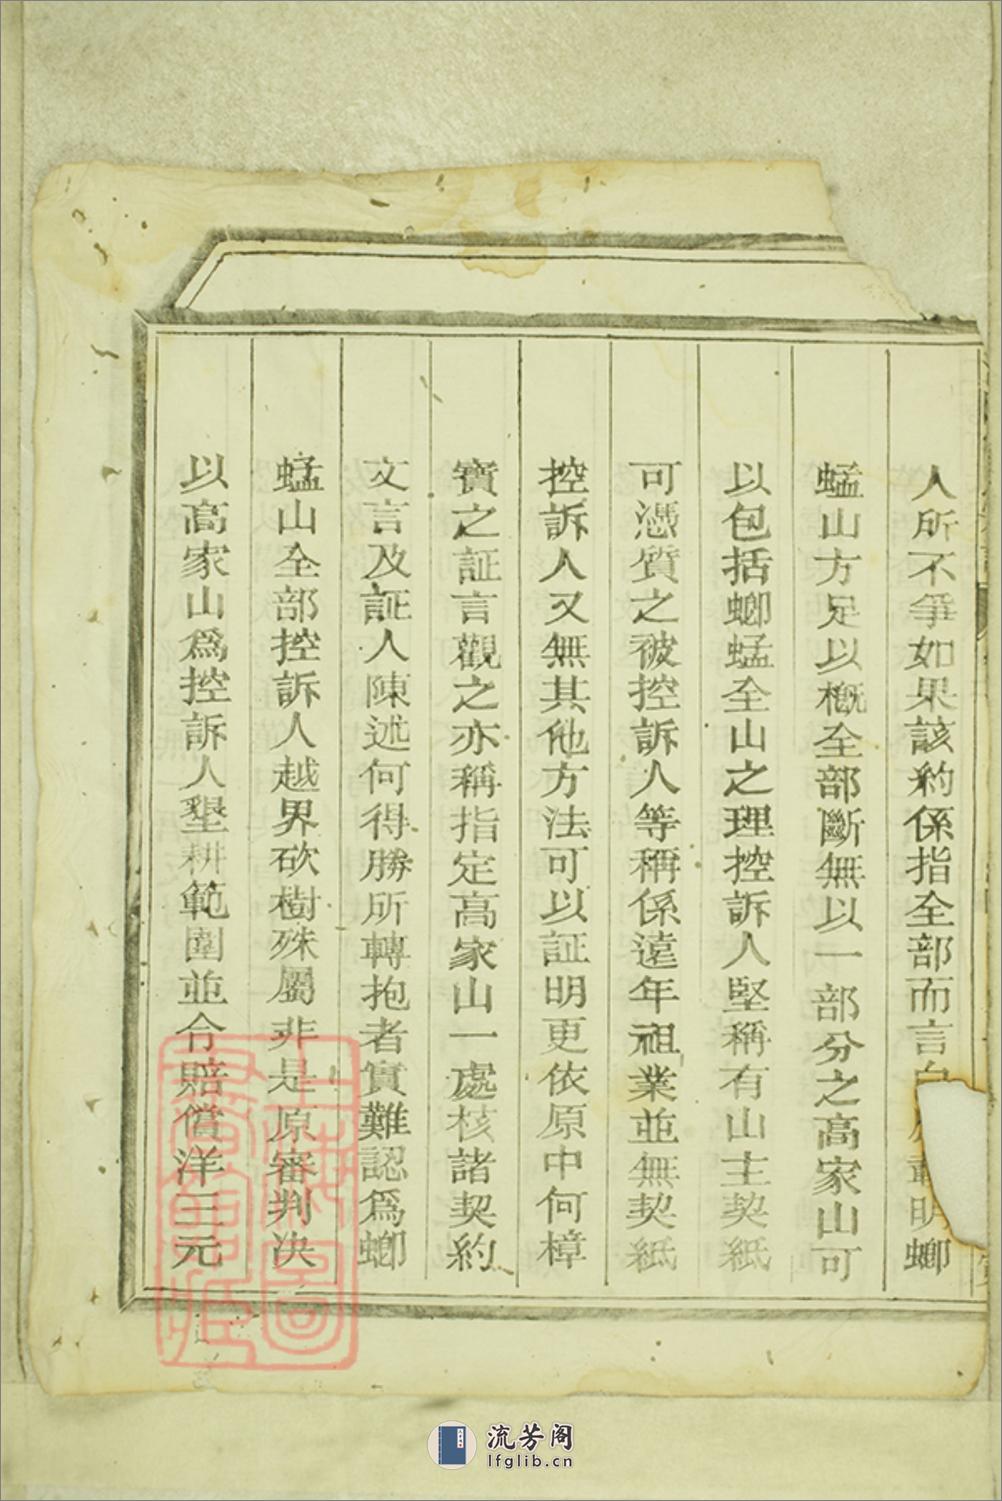 人所不爭如果該約係指全部而言自 明螂
蜢山方足以概全部斷無以一部分之高家山可
以包括螂蜢全山之理控訴人堅稱有山主契紙
可憑質之被控訴人等稱係遠年祖業並無契紙
控訴人又無其他方法可以証明更依原中何樟
寳之証言觀之亦稱指定高家山一處核諸契約
文言及証人陳述何得勝所轉抱者實難認爲螂
蜢山全部控訴人越界砍樹殊屬非是原審判决
以高家山爲控訴人墾耕範圍並令賠償洋三元
上海圖書館藏
流芳阁
lfglib.cn